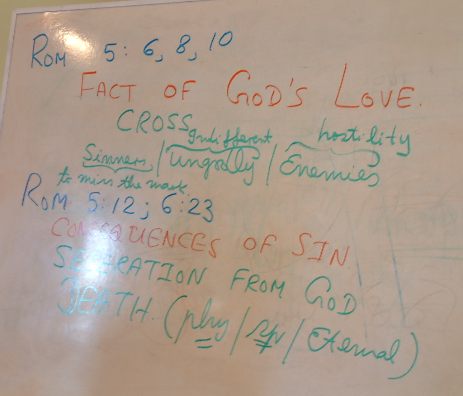 ROM 5: 6, 8, 10
FACT OF GOD'S LOVE.
CROSS
Indifferent hostility
Sinners / Ungodly / Enemies
to miss the mark
ROM 5:12; 6:23
CONSEQUENCES OF SIN
SEPARATION FROM GOD
DEATH (phy / sp / Eternal)